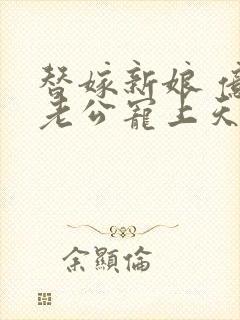 替嫁新娘
老公寵上天
余顯倫